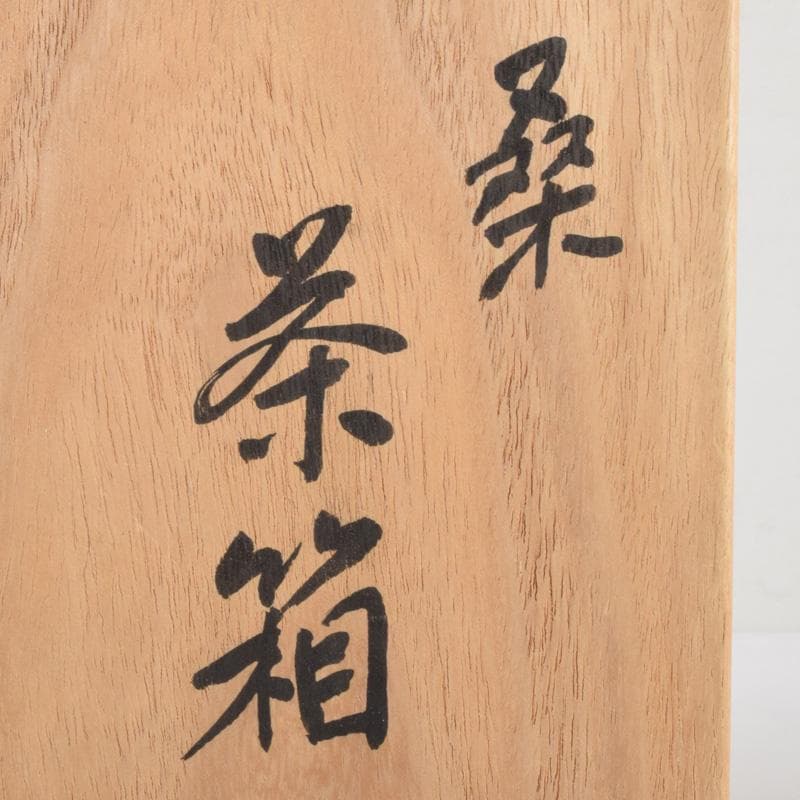 桑
茶箱